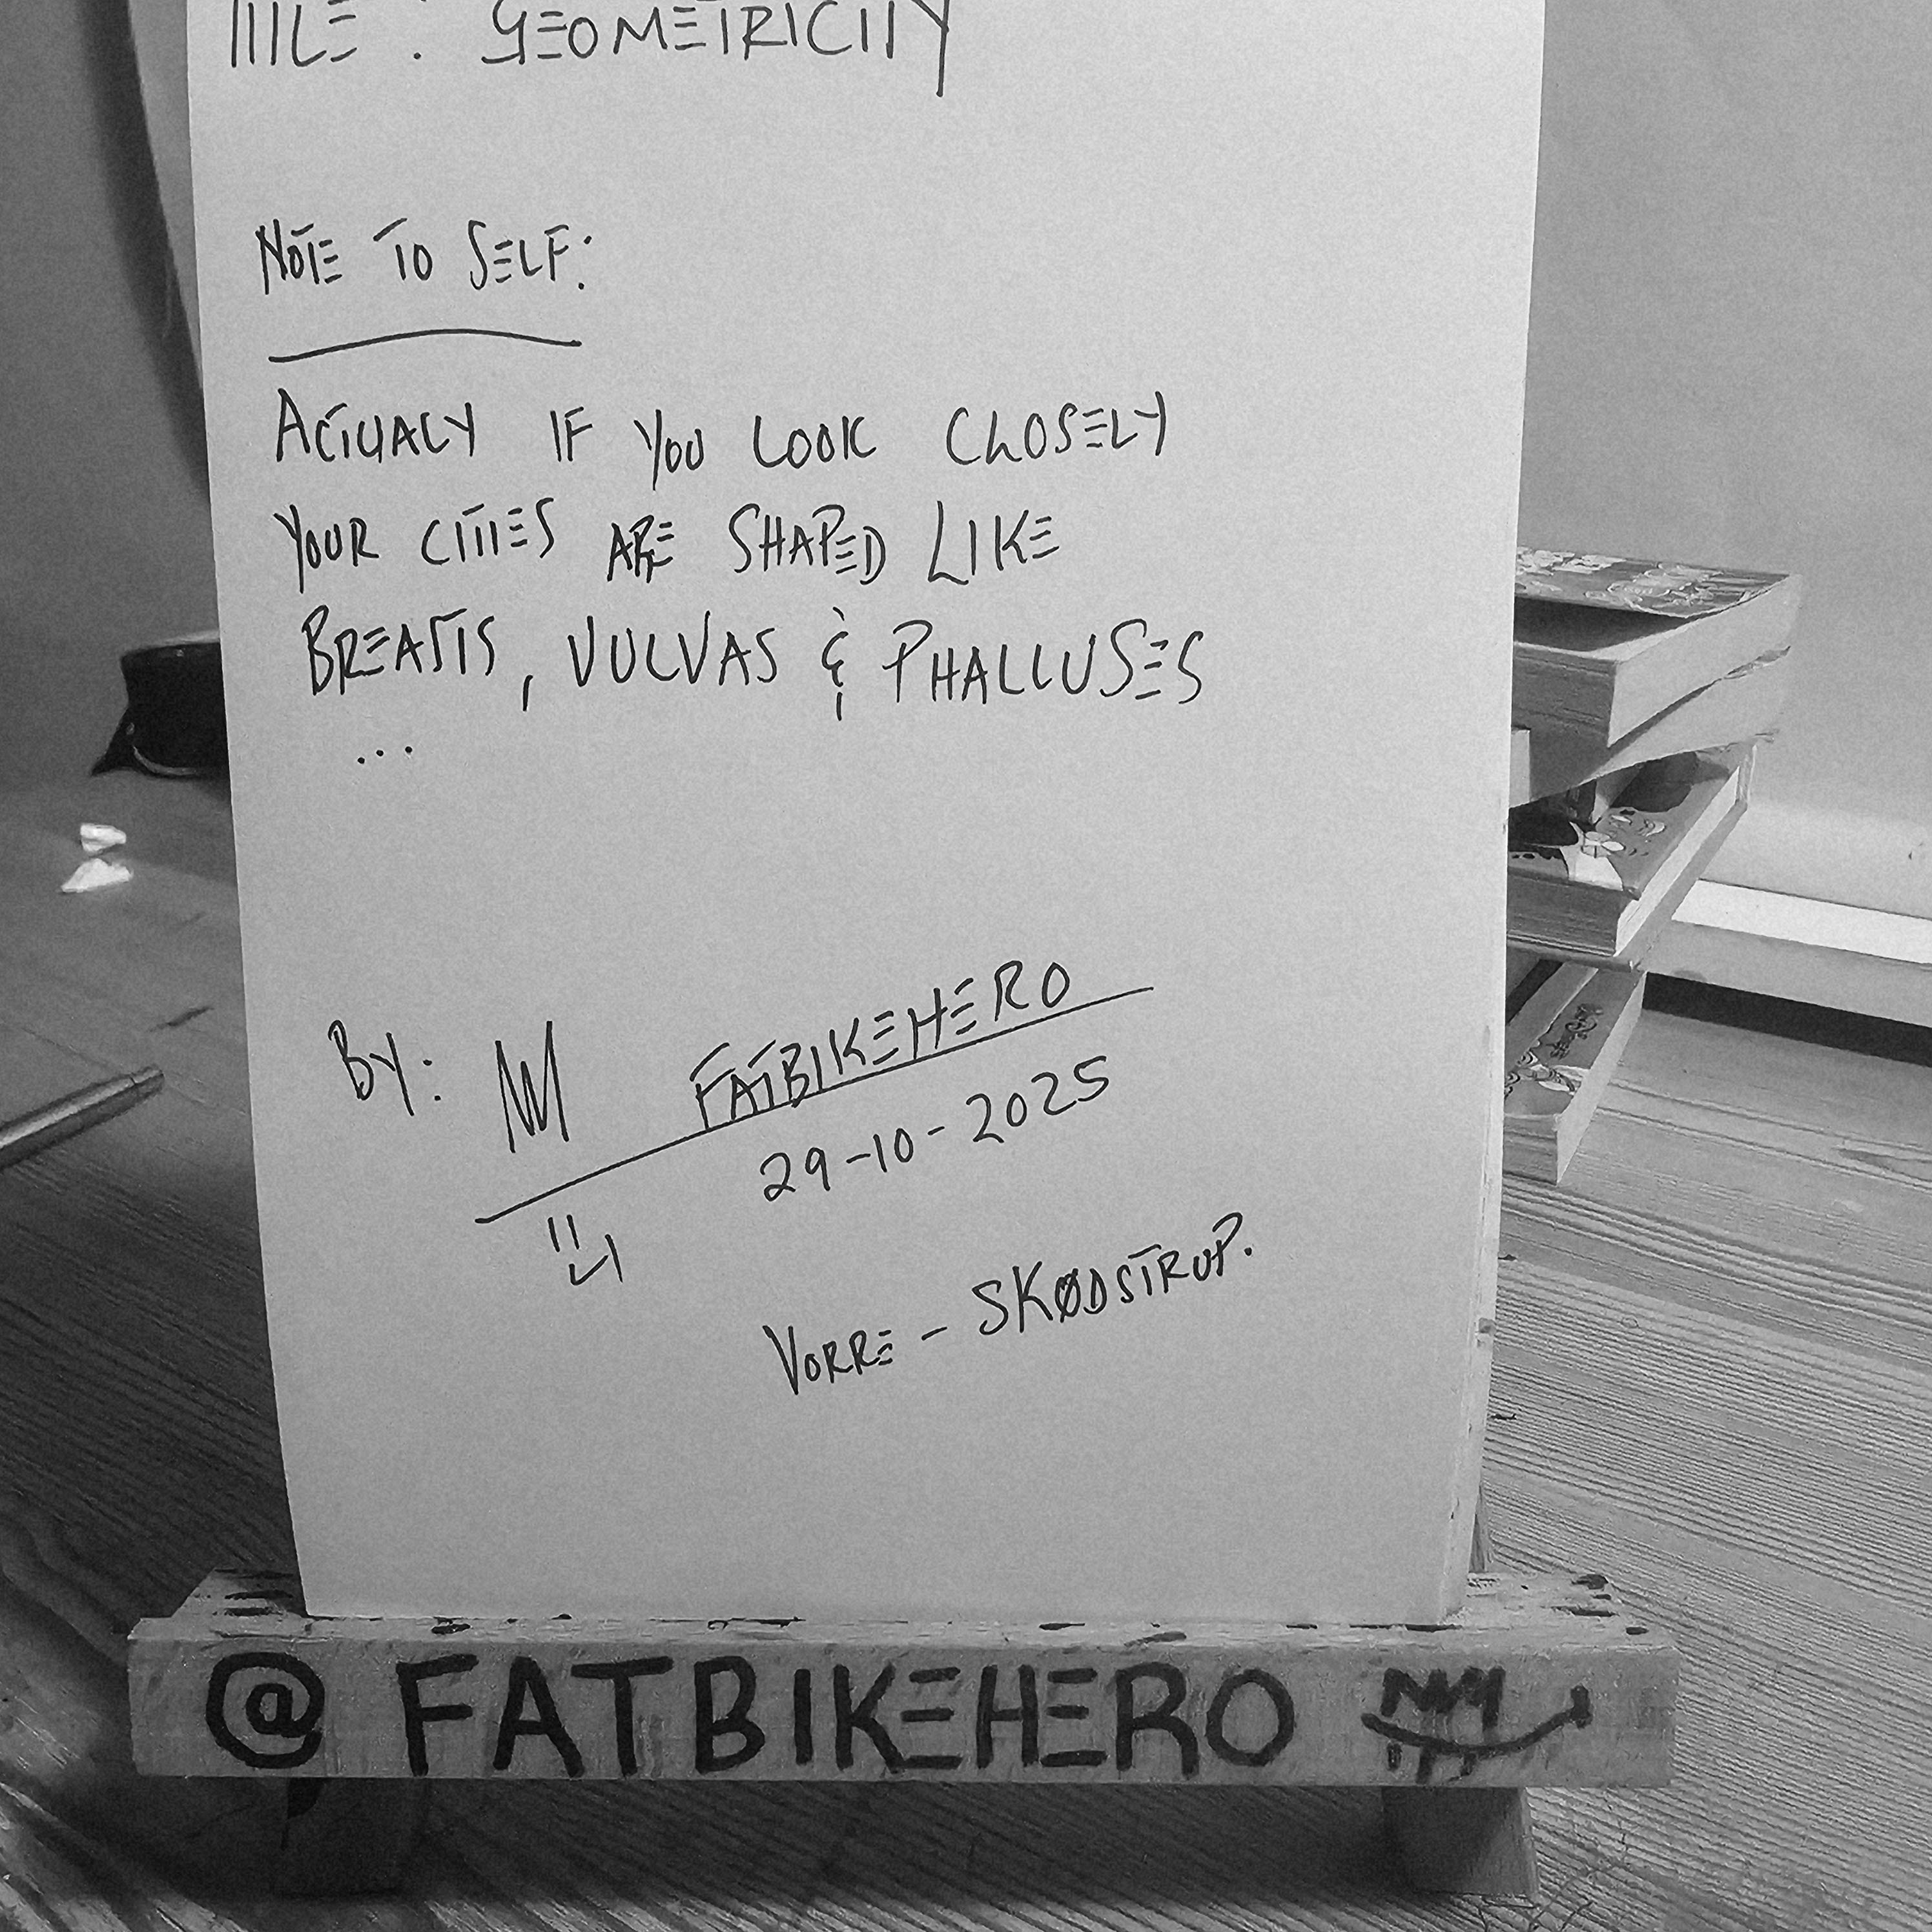 TITLE : GEOMETRICITY
NOTE TO SELF:
ACTUALY IF YOU LOOK CLOSELY
YOUR CITIES ARE SHAPED LIKE
BREASTS, VULVAS & PHALLUSES
...
BY: FATBIKEHERO
29-10-2025
VORRE - SKØDSTRUP.
@FATBIKEHERO